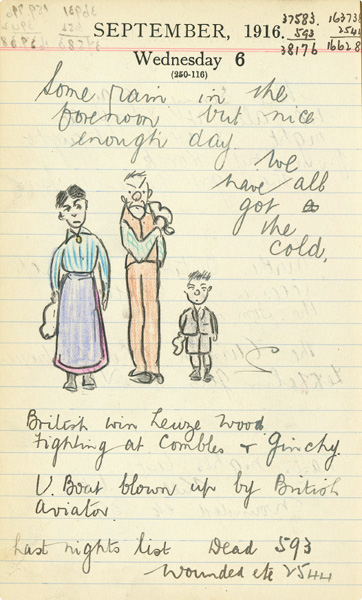 SEPTEMBER, 1916.
37583.
593
38176
Wednesday 6
(250-116)
Some rain in the
forenoon but nice
enough day.
We
have all
got
the
cold.
British win Leuze Wood
Fighting at Combles + Ginchy.
U. Boat blown up by British
Aviator.
Last nights list Dead 593
Wounded etc 2544